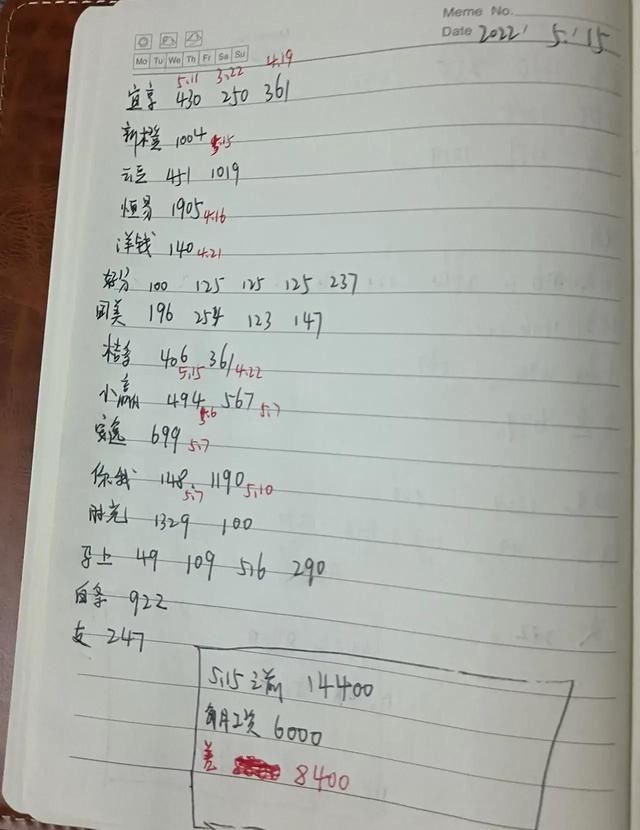 Meme No.
Date 2022 5.15
Mo Tu We Th Fr Sa Su
5.11 3.22 4.19
宜享 430 250 361
新橙 1004 5.15
云豆 451 1019
恒易 1905 4.16
洋钱 140 4.21
好分 100 125 125 125 237
国美 196 254 123 147
桔多 406 361 4.22
5.15
小赢 494 567 5.7
5.6
安逸 699 5.7
你我 148 1190 5.10
5.7
时光 1329 100
马上 49 109 516 290
白条 922
支 247
5.15之前 14400
每月工资 6000
差 8400